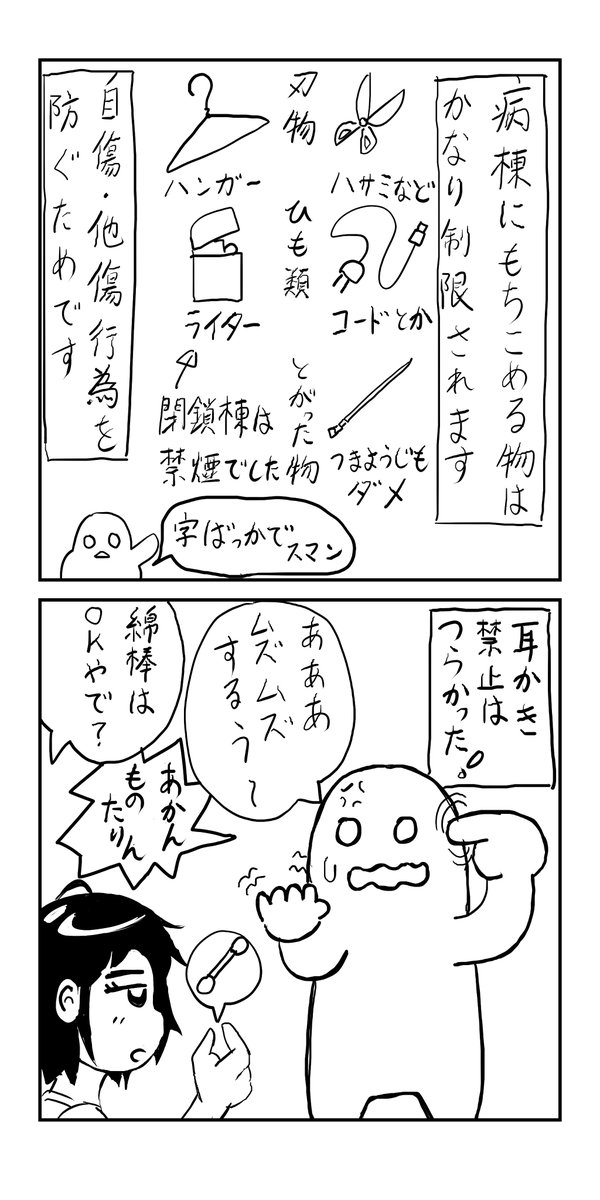 病棟にもちこめる物は
かなり制限されます
ハサミなど
コードとか
つまようじも
ダメ
刃物
ひも類
とがった物
ハンガー
ライター
閉鎖棟は
禁煙でした
自傷・他傷行為を
防ぐためです
字ばっかで
スマン
耳かき
禁止は
つらかった!
あああ
ムズムズ
するぅ〜
綿棒は
OKやで?
あかん
もの
たりん